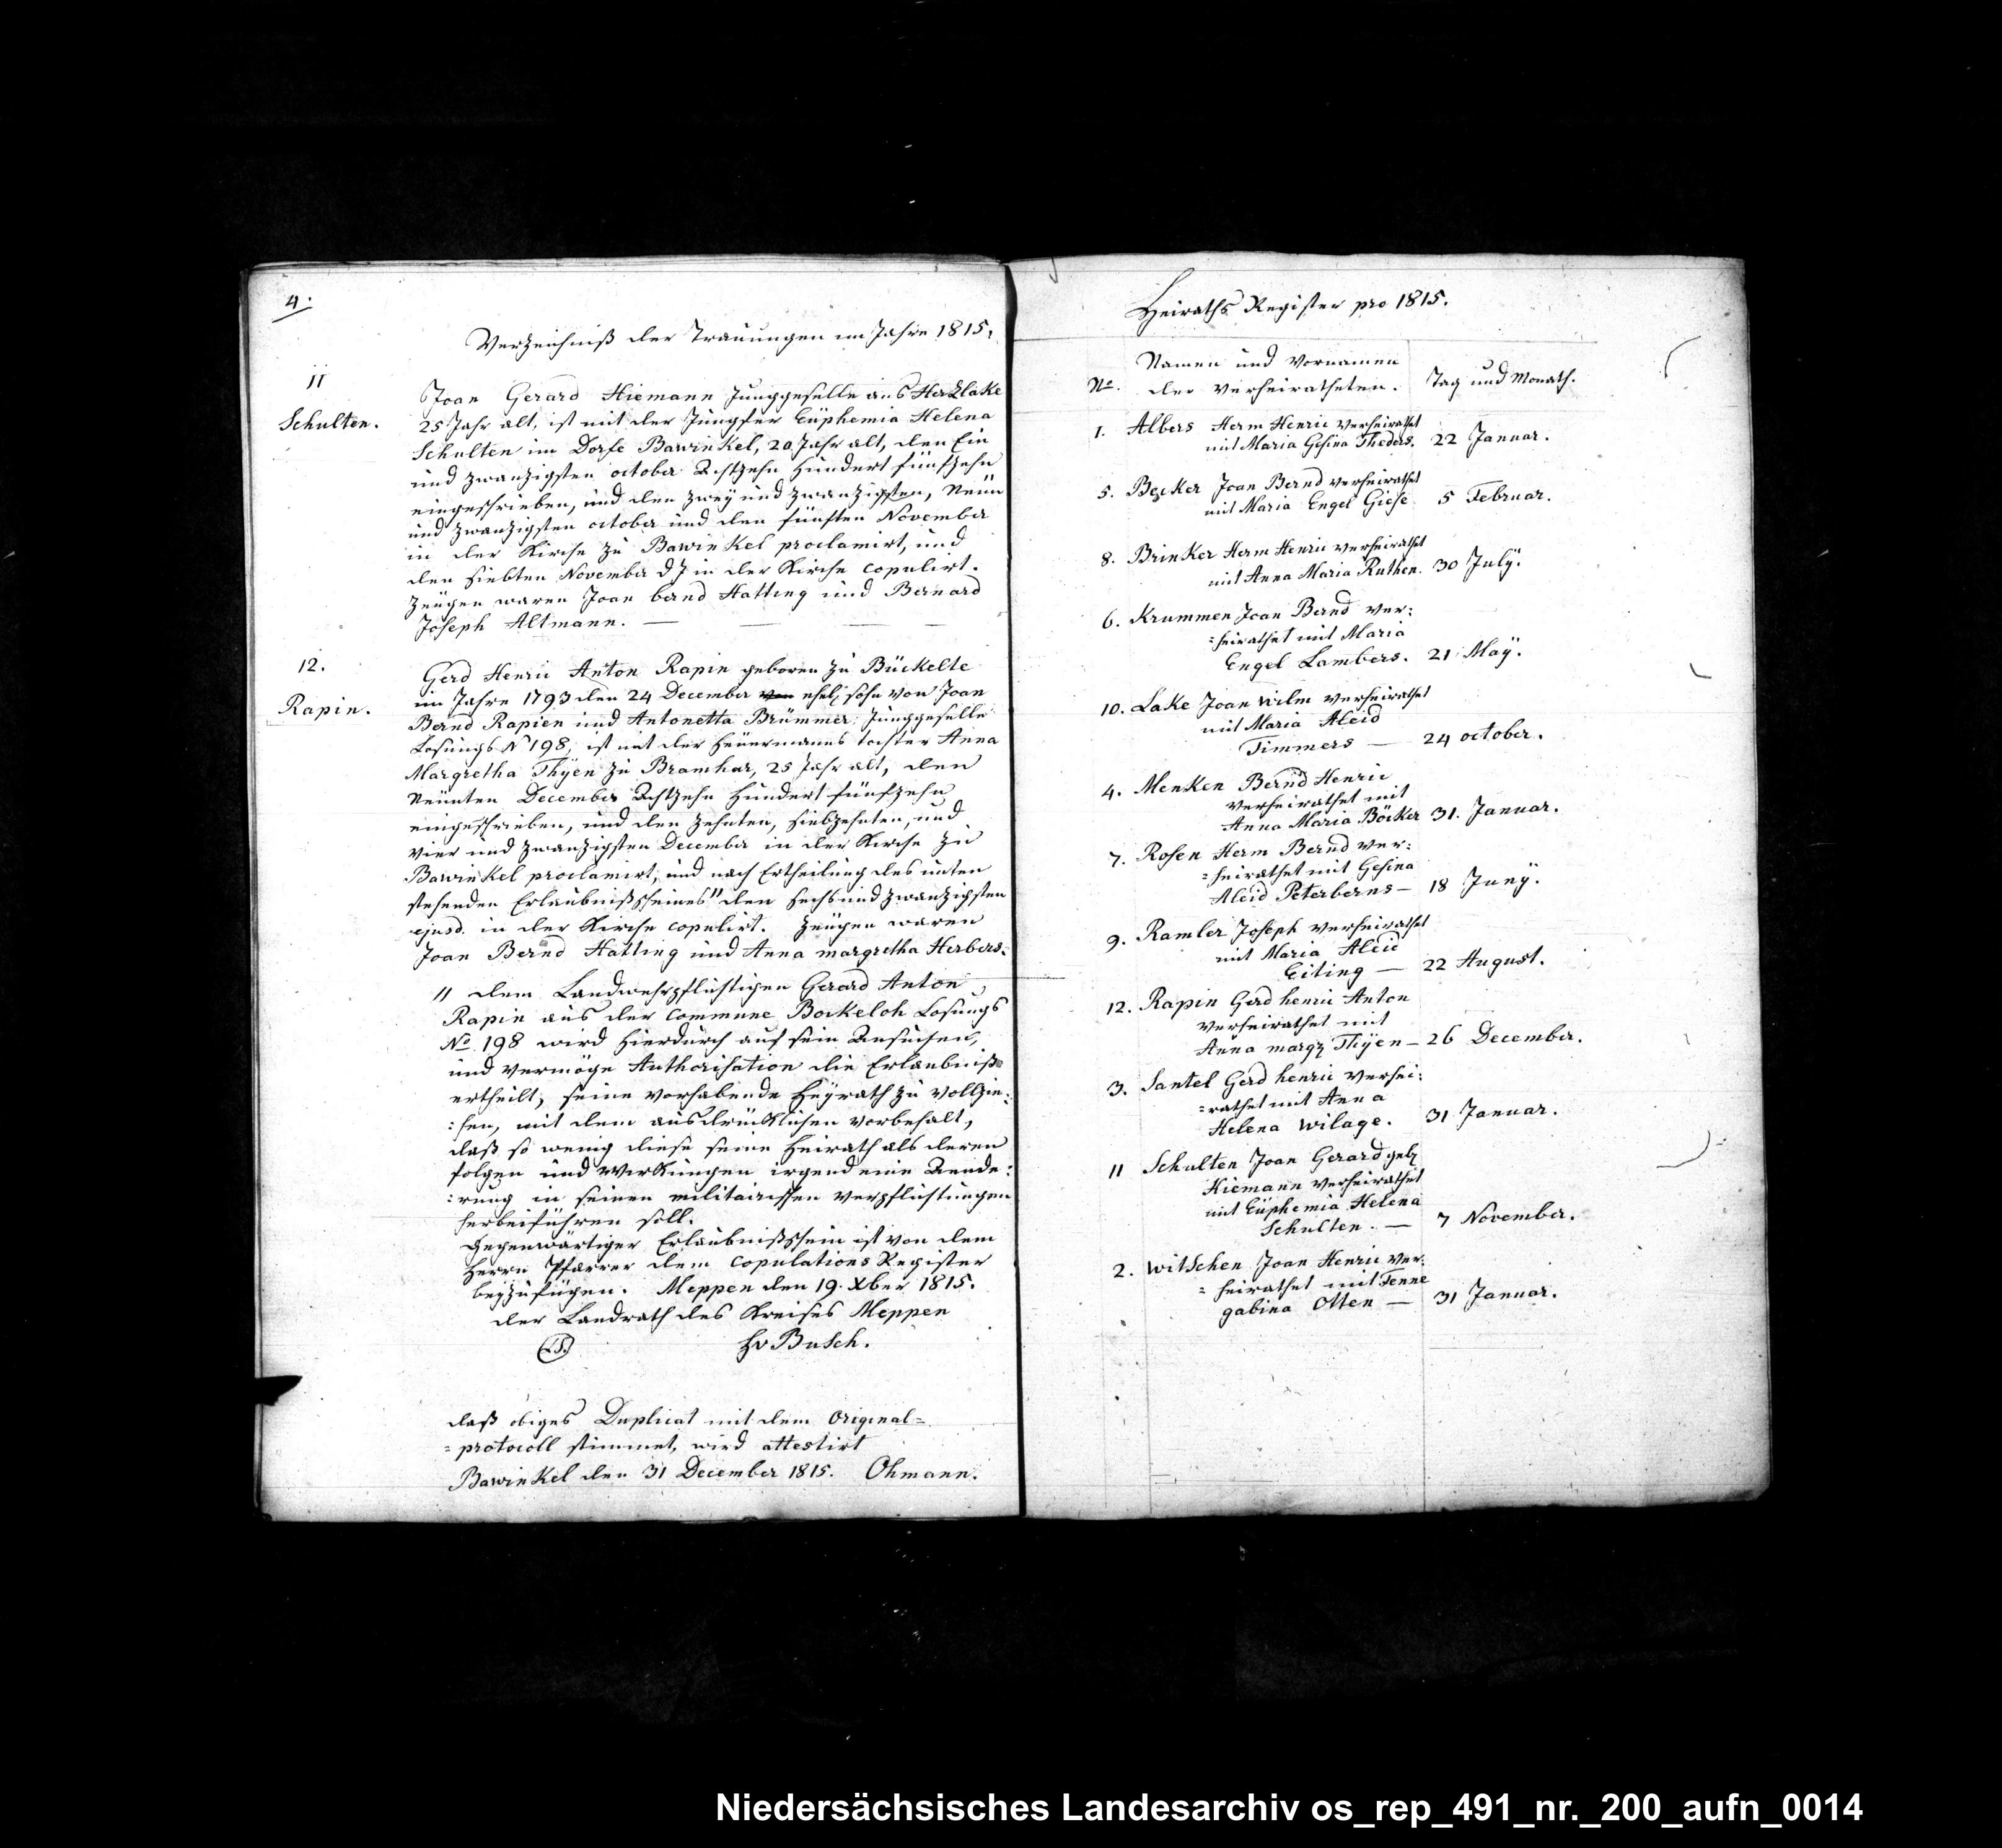 4.
Verzeichniß der Trauungen im Jahre 1815.
11
Schulten.
Joan Gerard Hiemann Junggeselle aus Herzlake
25 Jahr alt, ist mit der Jungfer Euphemia Helena
Schulten im Dorfe Bawinkel, 20 Jahr alt, den Ein
und zwanzigsten october Achtzehn Hundert fünfzehn
eingeschrieben, und den zwey und zwanzigsten, Neun
und zwanzigsten october und den fünften November
in der Kirche zu Bawinkel proclamirt, und
den siebten November d J in der Kirche copulirt.
Zeugen waren Joan bernd Hatting und Bernard
Joseph Altmann.
12.
Rapin.
Gerd Henric Anton Rapin geboren zu Bückelte
im Jahre 1793 den 24 December von ehel. sohn von Joan
Bernd Rapien und Antonetta Brümmer, Junggeselle
Losungs N 198, ist mit der Heuermanns tochter Anna
Margretha Thÿen zu Bramhar, 25 Jahr alt, den
Neunten December Achtzehn Hundert fünfzehn
eingeschrieben, und den zehnten, siebzehnten, und
vier und zwanzigsten December in der Kirche zu
Bawinkel proclamirt, und nach Ertheilung des unten
stehenden Erlaubnißscheines" den sechs und zwanzigsten
ejusd. in der Kirche copulirt. Zeugen waren
Joan Bernd Hatting und Anna margretha Herbers.
" dem Landwehrpflichtigen Gerard Anton
Rapin aus der Commune Bockeloh Losungs
No 198 wird hierdurch auf sein Ansuchen,
und vermöge Authorisation die Erlaubniß
ertheilt, seine vorhabende Heyrath zu vollzie:
:hen, mit dem ausdrücklichen vorbehalt,
daß so wenig diese seine Heirath als deren
folgen und Wirkungen irgend eine Aende:
:rung in seinen militairischen verpflichtungen
herbeiführen soll.
Gegenwärtiger Erlaubnißschein ist von dem
Herrn Pfarrer dem Copulations Register
beyzufügen. Meppen den 19. Xber 1815.
der Landrath des Kreises Meppen
(LS.) Hv Busch.
daß obiges Duplicat mit dem Original=
=protocoll stimmet, wird attestirt
Bawinkel den 31 December 1815. Ohmann.
Heiraths Register pro 1815.
No. Namen und Vornamen
der Verheiratheten. Tag und Monath.
1. Albers Herm Henric verheirathet
mit Maria Gesina Theders. 22 Januar.
5. Becker Joan Bernd verheirathet
mit Maria Engel Giese 5 Februar.
8. Brinker Herm Henric verheirathet
mit Anna Maria Ruthen. 30 Julÿ.
6. Krummen Joan Bernd ver:
=heirathet mit Maria
Engel Lambers. 21 Maÿ.
10. Lake Joan Wilm verheirathet
mit Maria Aleid
Timmers — 24 october.
4. Menken Bernd Henric
verheirathet mit
Anna Maria Böcker 31. Januar.
7. Rosen Herm Bernd ver:
=heirathet mit Gesina
Aleid Peterberns — 18 Junÿ.
9. Ramler Joseph verheirathet
mit Maria Aleid
Eiting — 22 August.
12. Rapin Gerd henric Anton
verheirathet mit
Anna marg. Thÿen — 26 December.
3. Santel Gerd henric verhei:
=rathet mit Anna
Helena Wilage. 31 Januar.
11 Schulten Joan Gerard geb.
Hiemann verheirathet
mit Euphemia Helena
Schulten. — 7 November.
2. Witschen Joan Henric ver:
=heirathet mit Fenne
gabina Otten — 31 Januar.
Niedersächsisches Landesarchiv os_rep_491_nr._200_aufn_0014